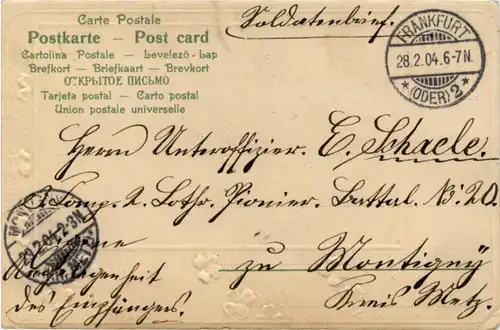 Carte Postale
Postkarte – Post card
Cartolina Postale – Levelező-Lap
Brefkort – Briefkaart – Brevkort
ОТКРЫТОЕ ПИСЬМО
Tarjeta postal – Carto postal
Union postale universelle
Soldatenbrief.
FRANKFURT
28.2.04.6-7N.
* (ODER) 2 *
Herrn Unteroffizier. E. Schaele.
Comp. 2. Lothr. Pionier. Battal. No. 20.
2-3N
Eigene
Angelegenheit
des Empfängers.
zu Montigny
Kreis Metz.